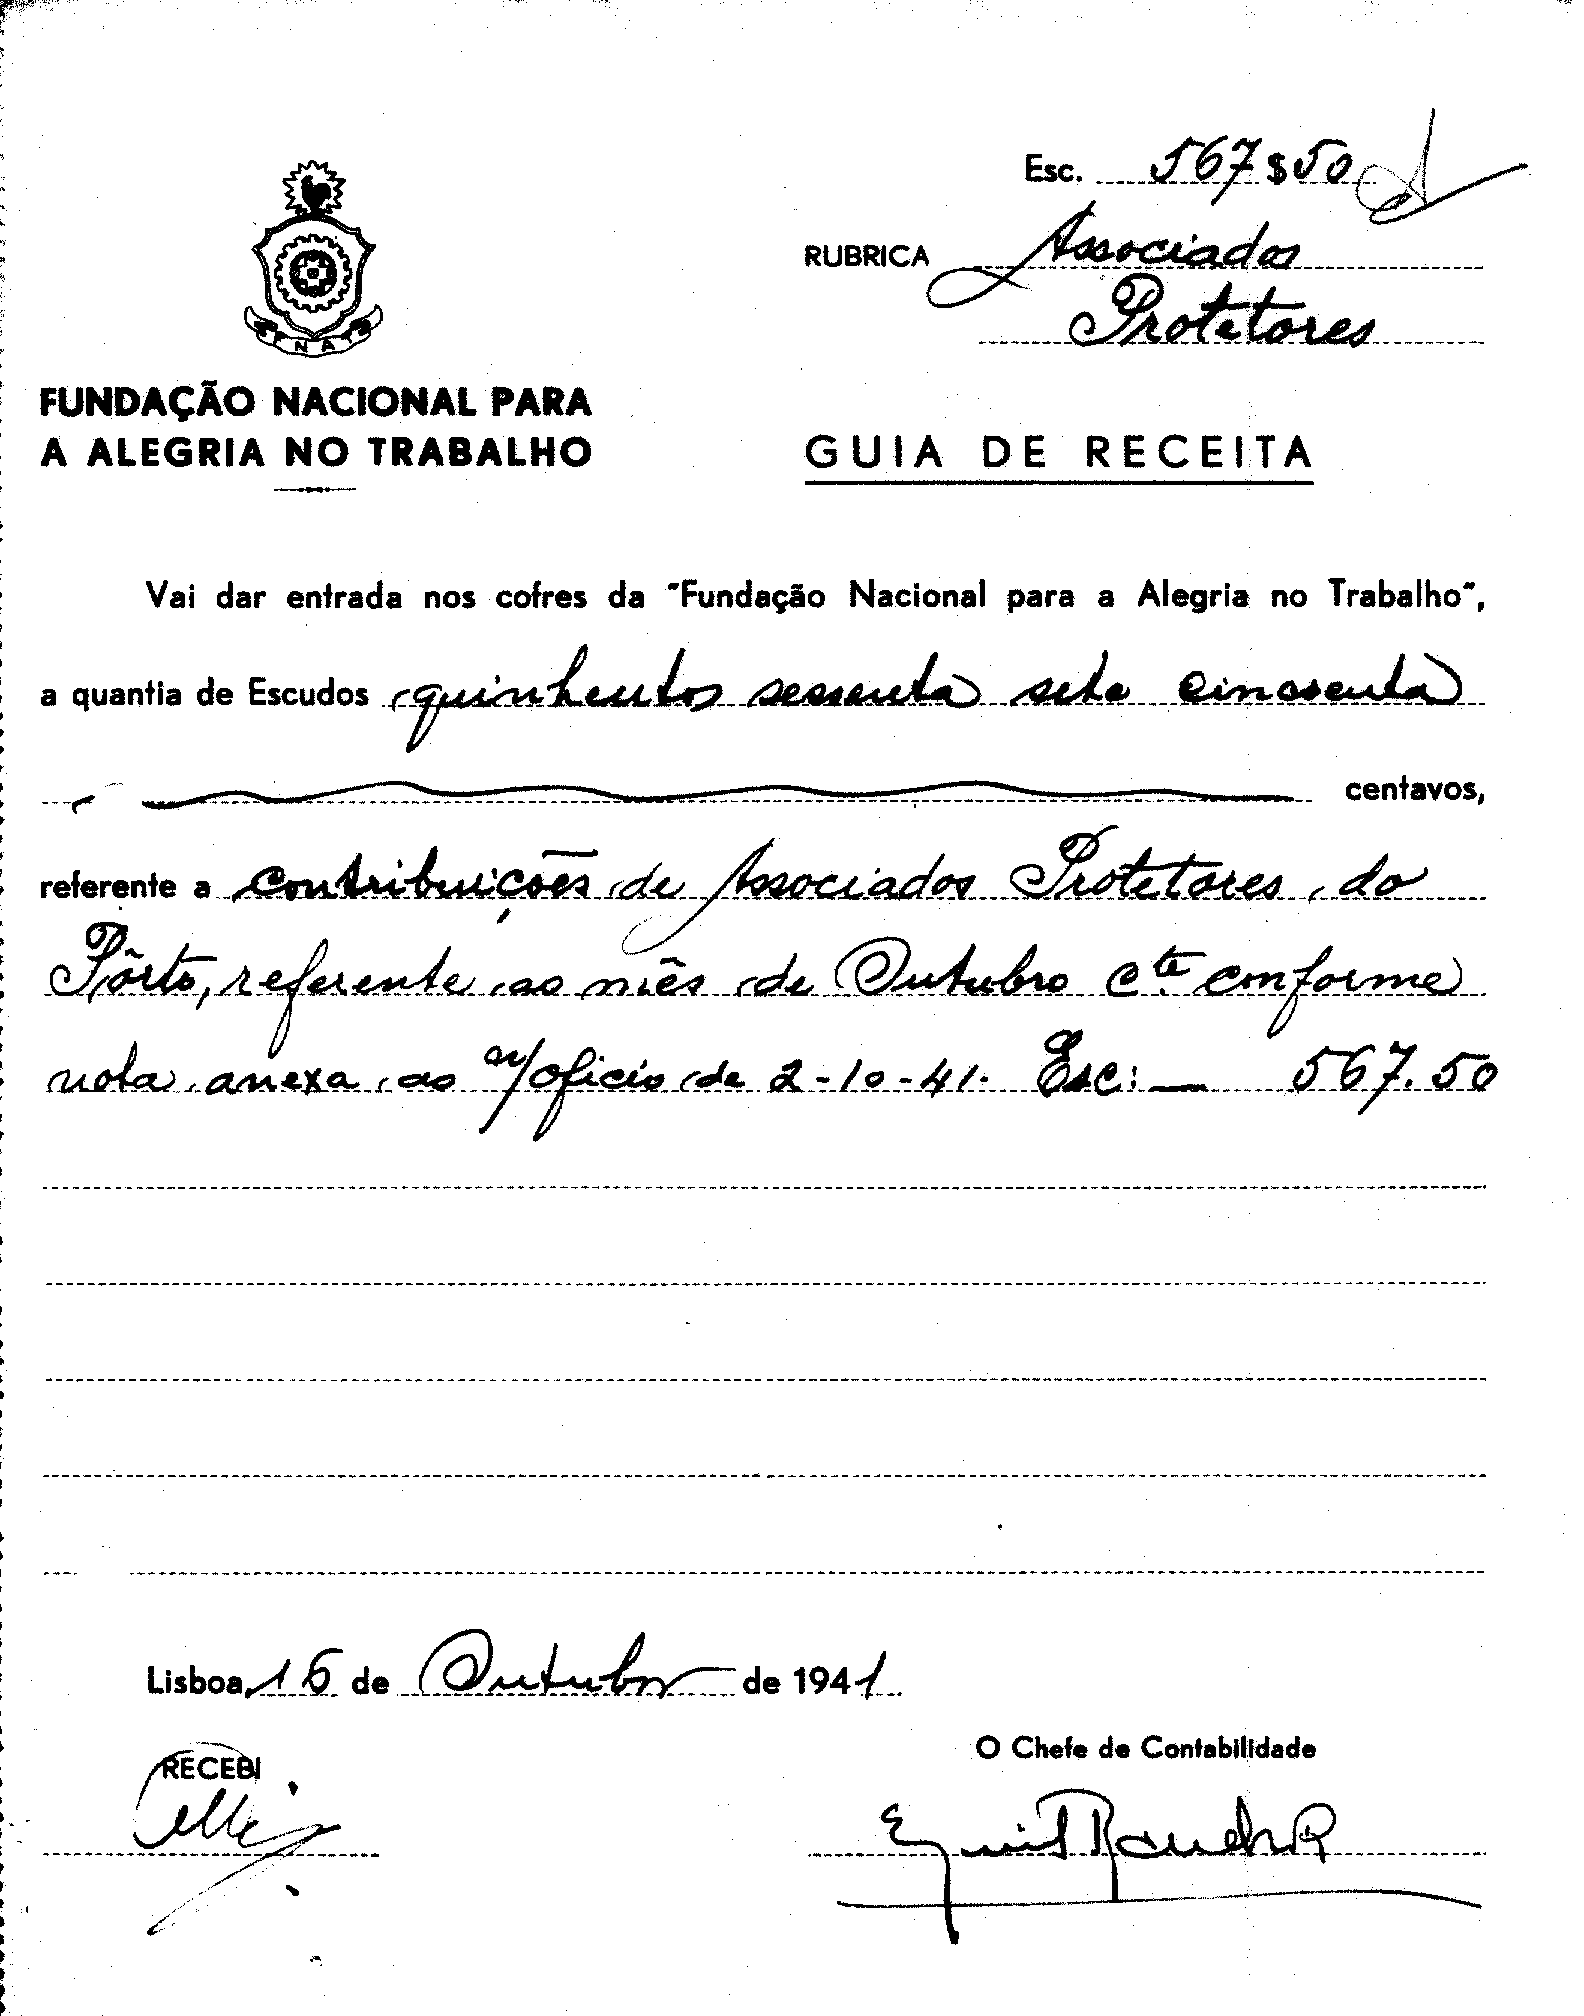 Esc. 567$50
RUBRICA Associados
Protetores
FNAT
FUNDAÇÃO NACIONAL PARA
A ALEGRIA NO TRABALHO
GUIA DE RECEITA
Vai dar entrada nos cofres da "Fundação Nacional para a Alegria no Trabalho",
a quantia de Escudos quinhentos sessenta sete cincoenta
centavos,
referente a contribuições de Associados Protetores, do
Pôrto, referente ao mês de Outubro cte conforme
nota anexa ao n/ oficio de 2-10-41. Esc: — 567.50
Lisboa, 16 de Outubro de 1941
RECEBI
O Chefe de Contabilidade